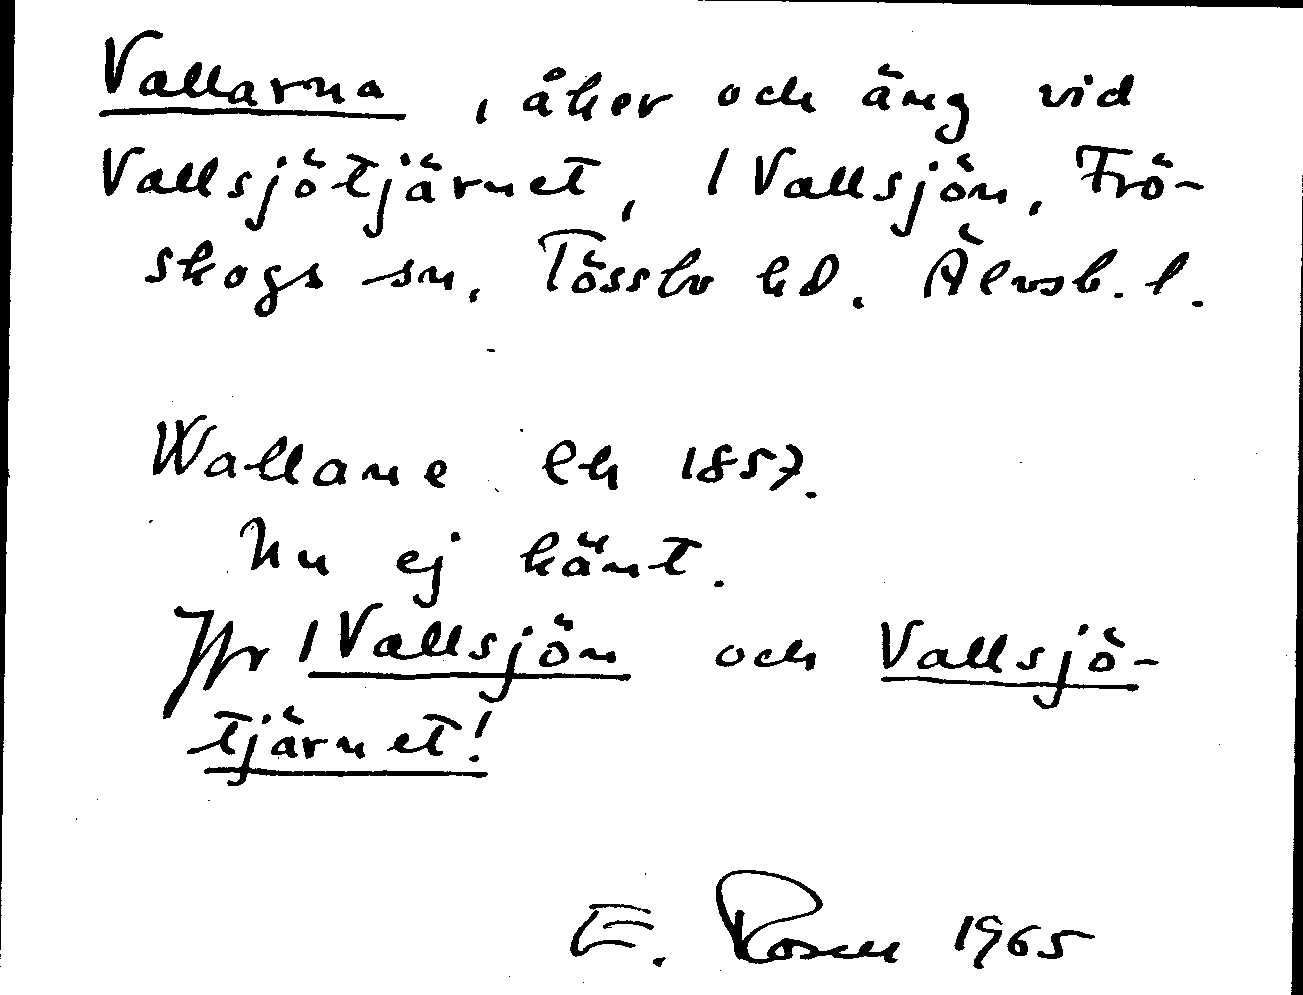 Vallarna, åker och äng vid
Vallsjötjärnet, 1 Vallsjön, Frö-
skogs sn, Tössbo hd. Älvsb. l.
Wallane Ek 1857.
Nu ej känt.
Jfr 1 Vallsjön och Vallsjö-
tjärnet!
E. Rosell 1965